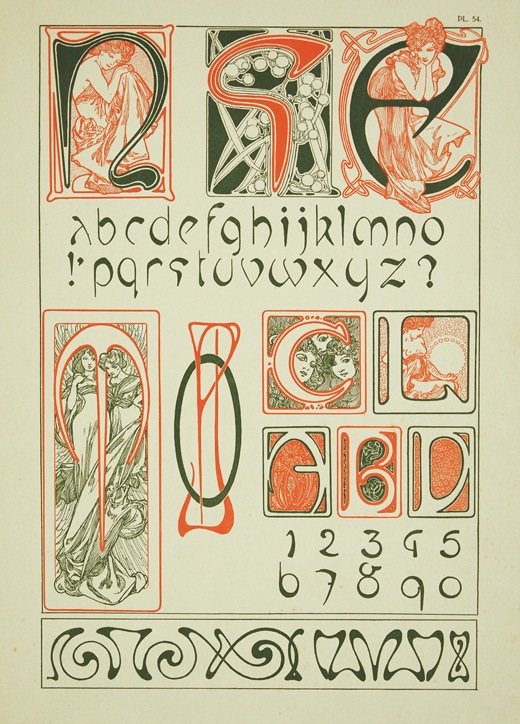 PL. 54.
abcdefghijklmno
!'pqrstuvwxyz?
M O C L
B D
1 2 3 4 5
6 7 8 9 0